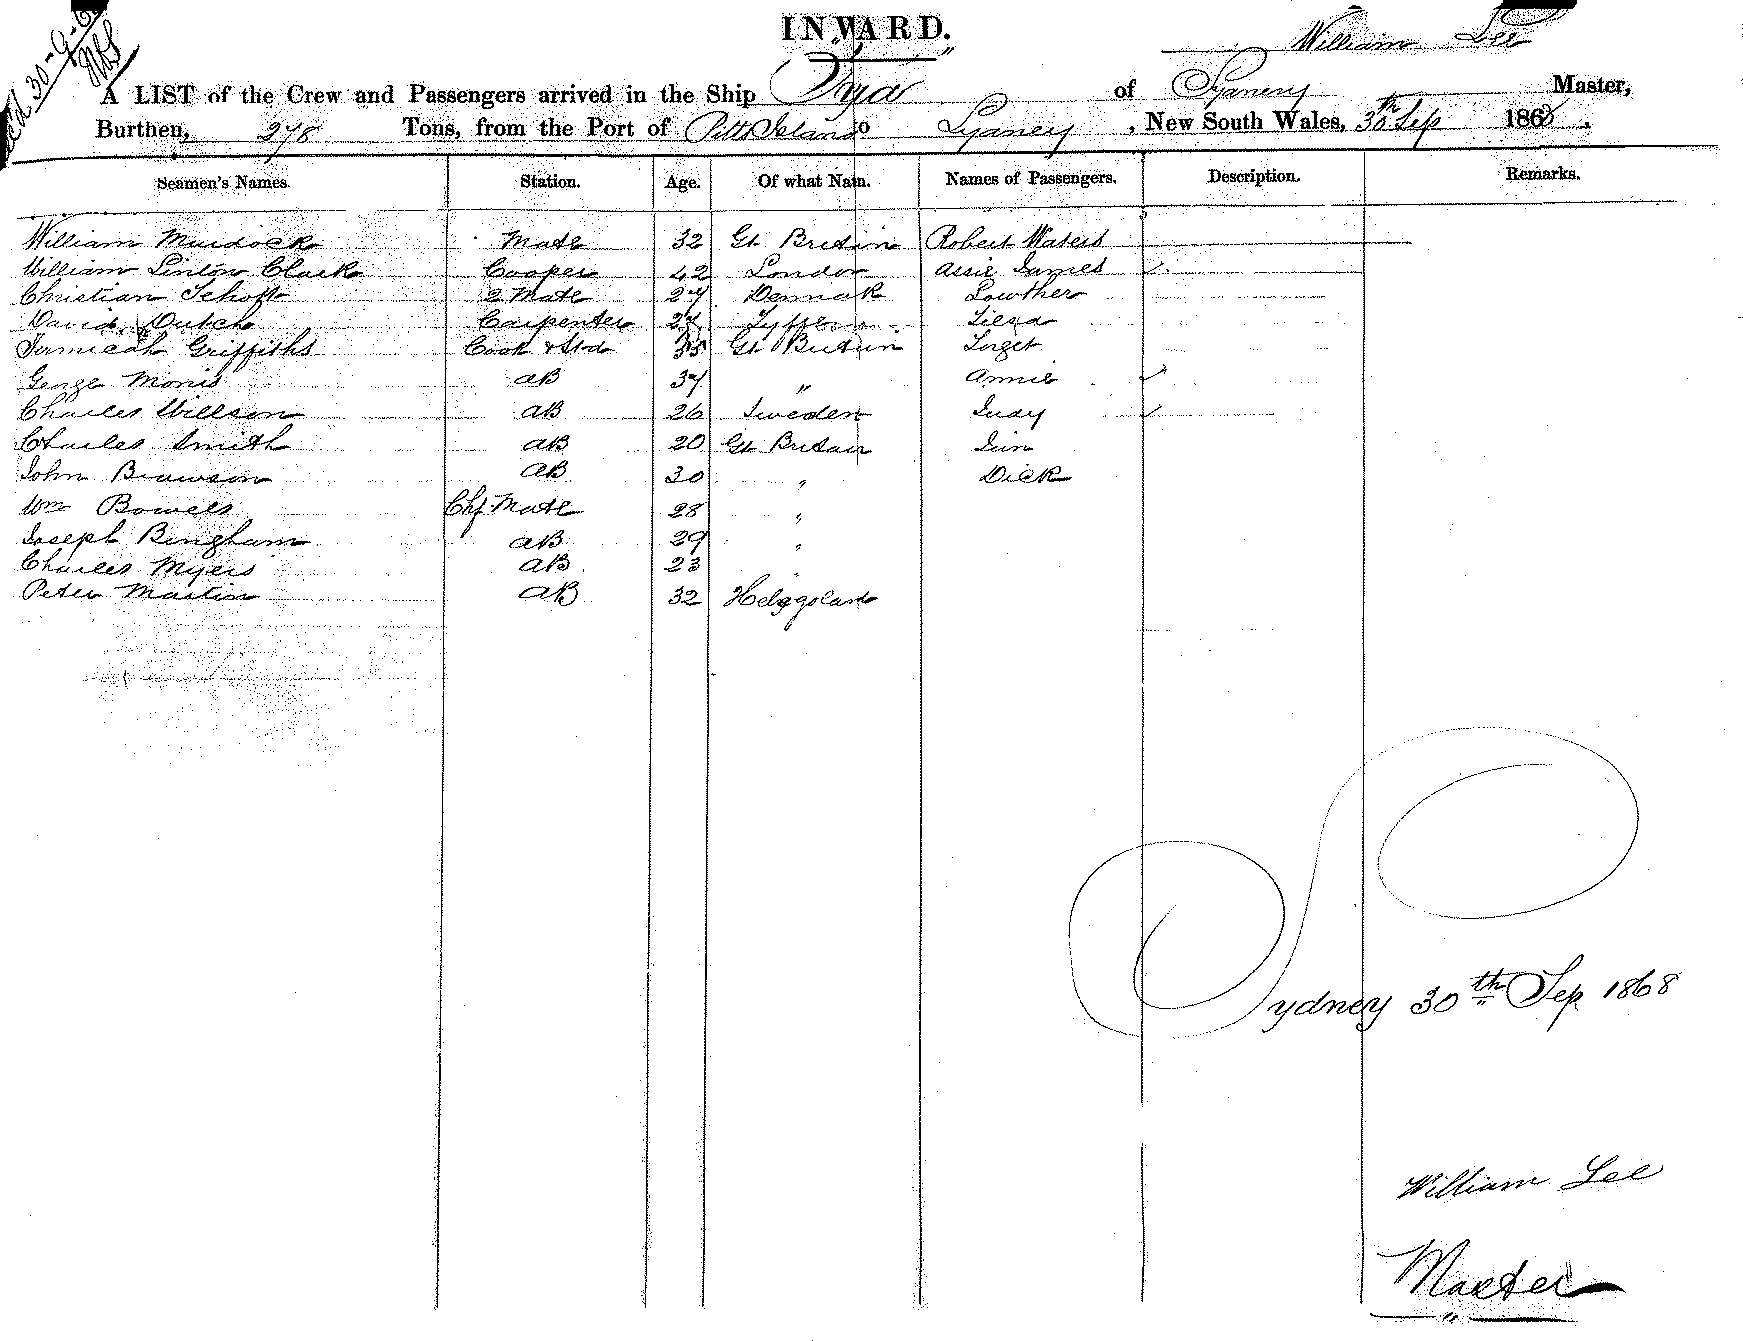 30-9-6
INWARD.
William Lee
A LIST of the Crew and Passengers arrived in the Ship of Sydney Master,
Burthen, 278 Tons, from the Port of Pitt Island to Sydney, New South Wales, 30th Sep 1868.
Seamen's Names. Station. Age. Of what Nain. Names of Passengers. Description. Remarks.
William Murdock Mate 32 Gt Britain Robert Waters
William Linton Clark Cooper 42 London James
Christian Mate 27 Denmark Lowther
David Dutch Carpenter 27
Jermieah Griffiths Cook & Std 35 Gt Britain
George Morris AB 37 " Annie
Charles Willson AB 26 Sweden Judy
Charles Smith AB 20 Gt Britain Jim
John AB 30 " Dick
Wm Bowels Chf Mate 28 "
Joseph Bingham AB 29 "
Charles Myers AB 23
Peter Martin AB 32
Sydney 30th Sep 1868
William Lee
Master